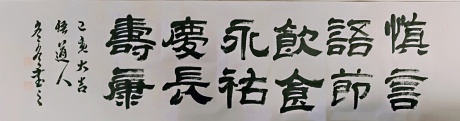 慎言
語節
飲食
永祜
慶長
壽康
己亥大吉
悟道人